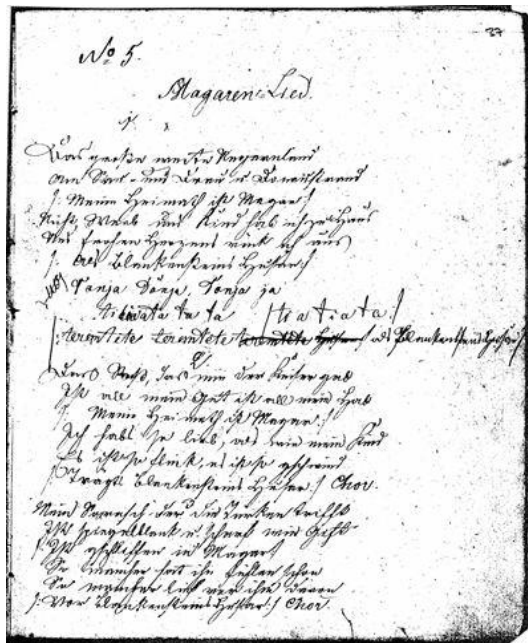 37
No 5.
Magaren-Lied.
Das große weite Ungarnland
am Sau- und Drau u. Donaustrand
/: Meine Heimath ist Magar :/
Nicht Weib und Kind hab ich zu Haus
Mit frohem Herzen rück ich aus
/: Als Blankensteins Husar :/
Tonja Donja, Tonja ja
ta ta ta /: tra tra ta :/
/: teremtete teremtete teremtete als Blankensteins Husar :/
Das Roß, das mir der Kaiser gab
Ist all mein Gut ist all mein Hab
/: Meine Heimath ist Magar :/
Ich habs so lieb, als wie mein Kind
Es ist so flink, es ist so gschwind
/: Trägt Blankensteins Husar :/ Chor.
Mein Sarasch der die Türken trifft
Ist spiegelblank u. scharf wie Gift
/: Ist gschliffen in Magar :/
So mancher hat ihn fühlen schon
So mancher lief vor ihm davon
/: Vor Blankensteins Husar :/ Chor.